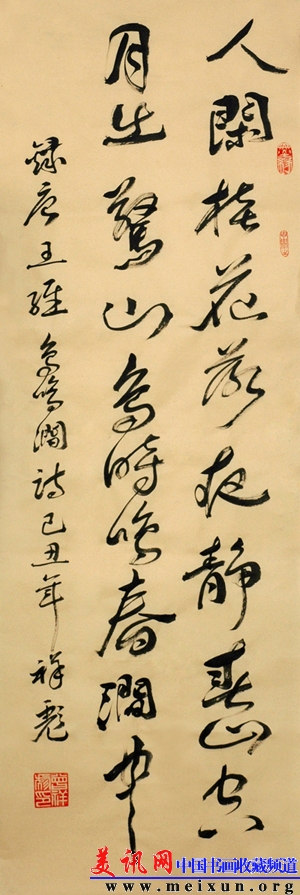 人閑桂花落夜静春山空
月出驚山鳥時鳴春澗中
錄唐王維鳥鳴澗詩己丑年祥彪
美讯网 中国书画收藏频道
www.meixun.org